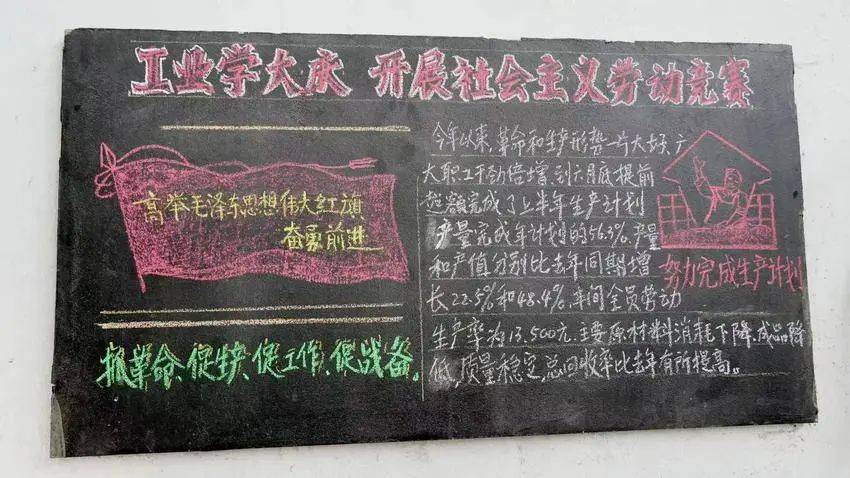 工业学大庆 开展社会主义劳动竞赛
高举毛泽东思想伟大红旗
奋勇前进
抓革命、促生产、促工作、促战备。
今年以来,革命和生产形势一片大好、广
大职工干劲倍增,到六月底提前
超额完成了上半年生产计划
产量完成年计划的56.3%.产量
和产值分别比去年同期增
长22.5%和48.4%.年间全员劳动
生产率为13.500元.主要原材料消耗下降.成品降
低,质量稳定,总回收率比去年有所提高。
努力完成生产计划